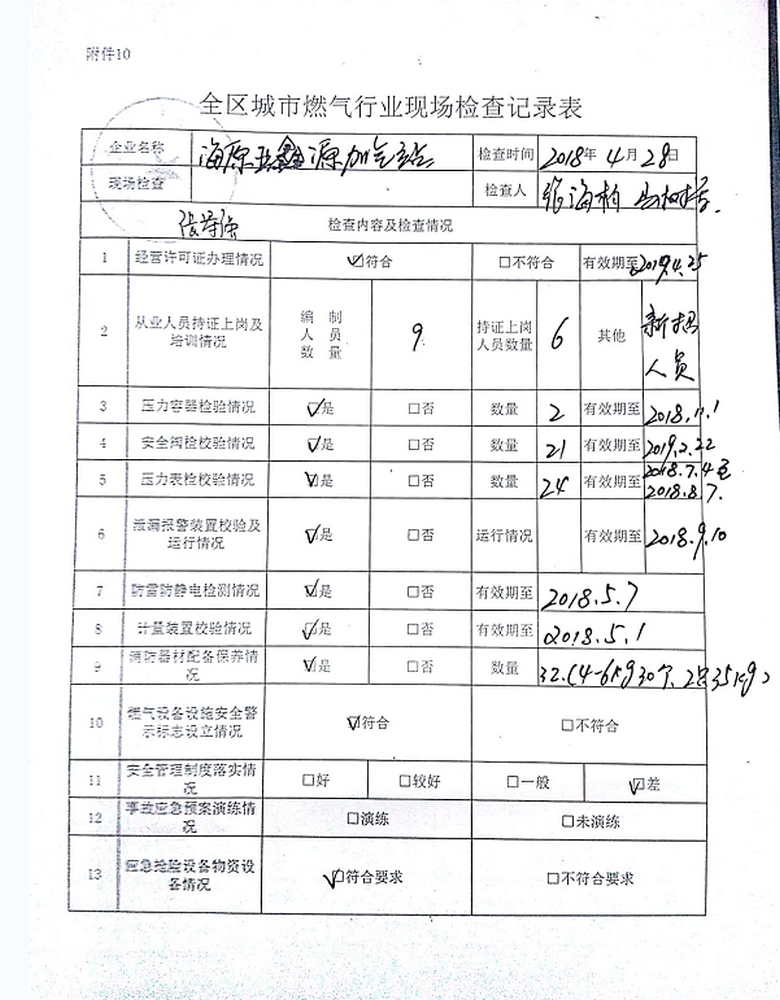 附件10
全区城市燃气行业现场检查记录表
企业名称 海原 鑫源加气站 检查时间 2018年 4月 28日
现场检查 检查人 海柏
检查内容及检查情况
1 经营许可证办理情况 ☑符合 □不符合 有效期至 2019.4.25
2 从业人员持证上岗及培训情况 编制人员数量 9 持证上岗人员数量 6 其他 新招人员
3 压力容器检验情况 ☑是 □否 数量 2 有效期至 2018.11.1
4 安全阀检校验情况 ☑是 □否 数量 21 有效期至 2019.2.22
5 压力表检校验情况 ☑是 □否 数量 24 有效期至 2018.7.4至 2018.8.7.
6 泄漏报警装置校验及运行情况 ☑是 □否 运行情况 有效期至 2018.9.10
7 防雷防静电检测情况 ☑是 □否 有效期至 2018.5.7
8 计量装置校验情况 ☑是 □否 有效期至 2018.5.1
9 消防器材配备保养情况 ☑是 □否 数量 32.(4-6kg30个、2只35kg)
10 燃气设备设施安全警示标志设立情况 ☑符合 □不符合
11 安全管理制度落实情况 □好 □较好 □一般 ☑差
12 事故应急预案演练情况 □演练 □未演练
13 应急抢险设备物资设备情况 ☑符合要求 □不符合要求